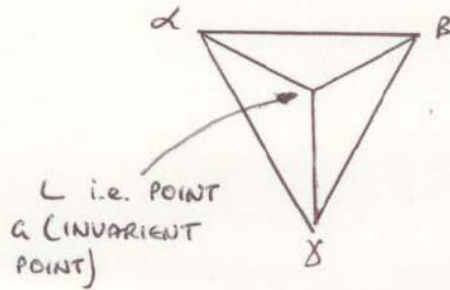 α B
L i.e. POINT
a (INVARIENT
POINT)
γ